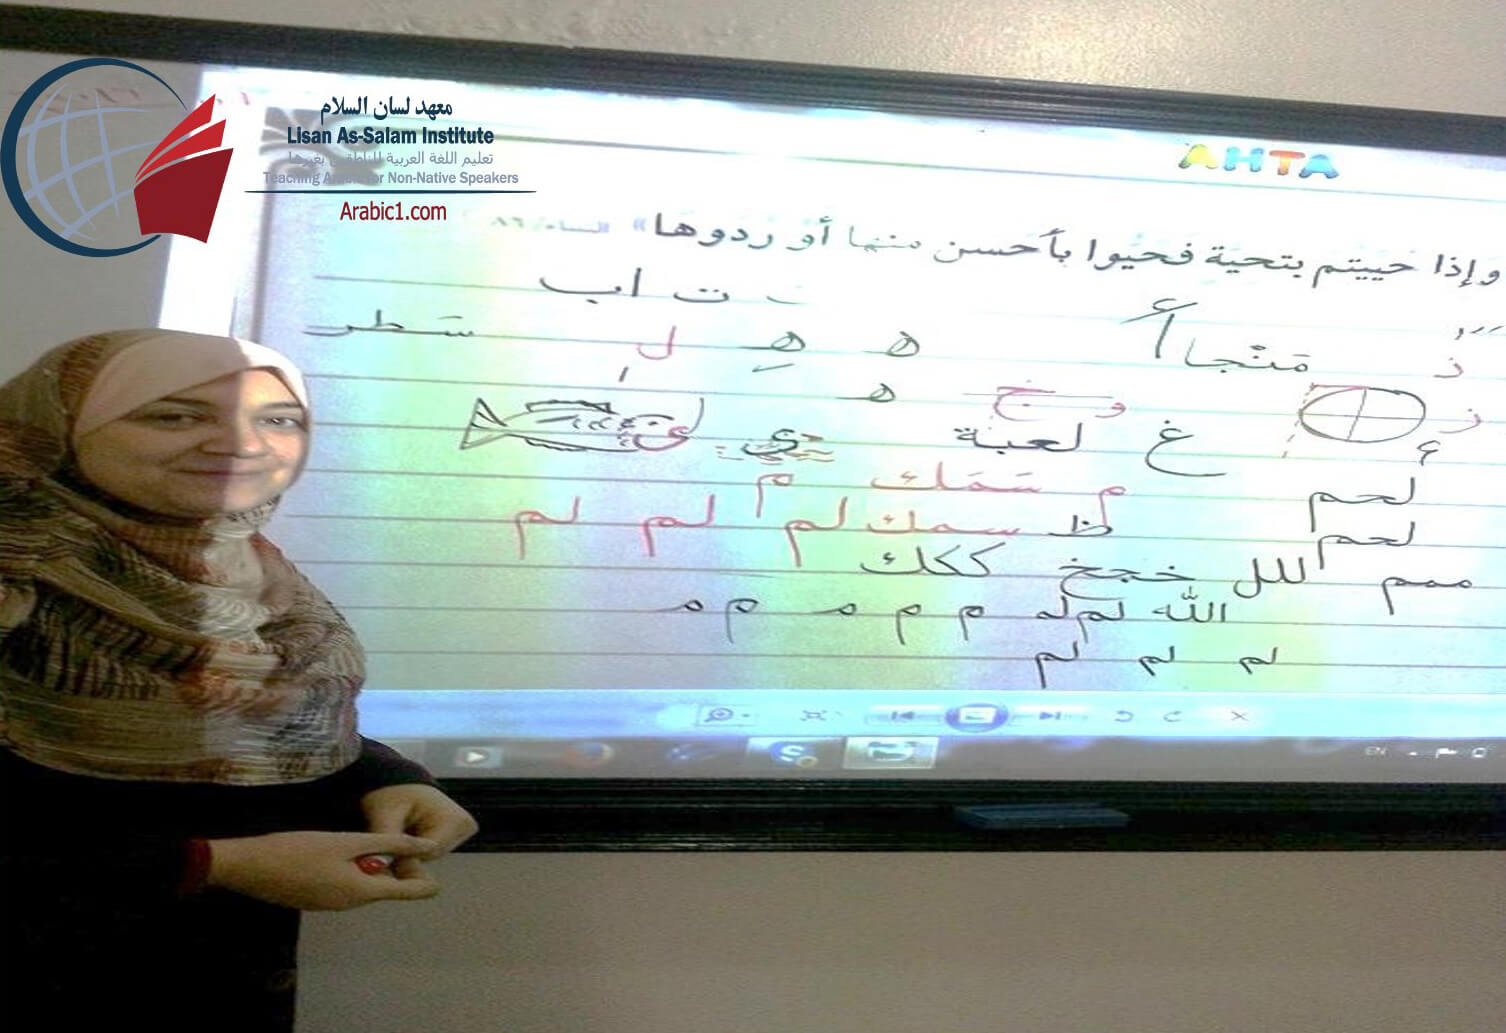 معهد لسان السلام
Lisan As-Salam Institute
تعليم اللغة العربية للناطقين بغيرها
Teaching Arabic for Non-Native Speakers
Arabic1.com
AHTA
وَإِذا حَيِيتم بتحيَة فَحَيُوا بأحَسن منها أوْ رُدوهَا» «النساء/٨٦
ت اب
مَنْجا أ ه هِ لِ سَطر
ه خ و
غ لعبة ي ئ
لحم م سَمَك م
لحم ظ سمك لم لم لم
ممم لللل خجخ ككك
الله لم له م م م م م
لم لم لم
EN